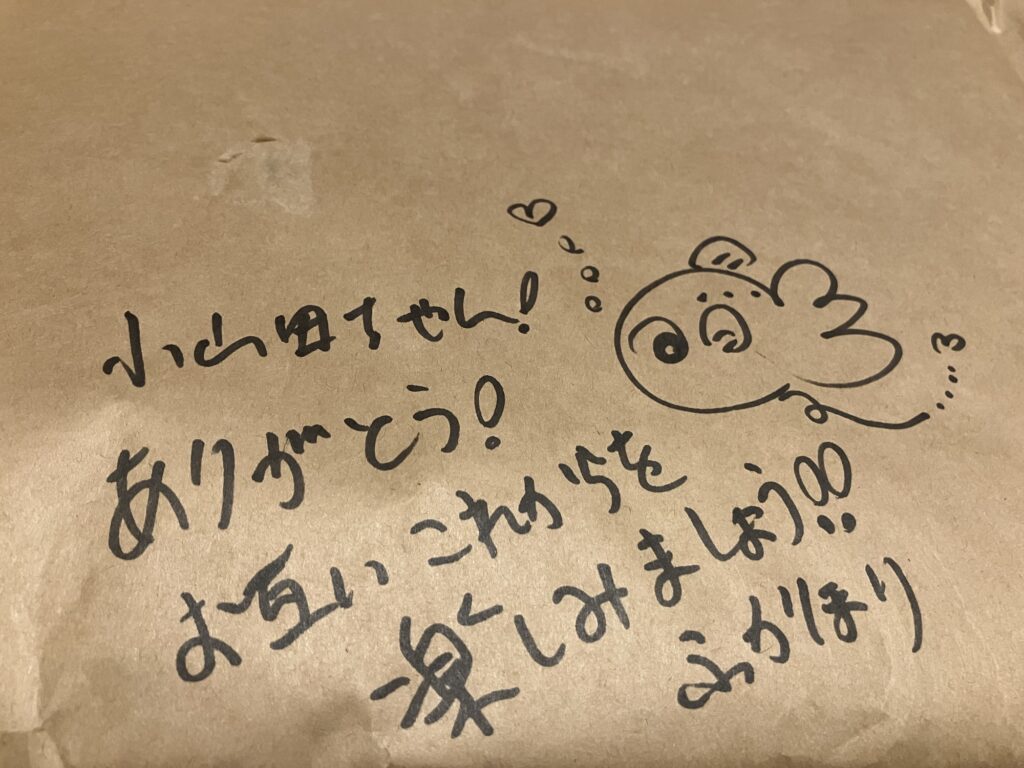 小山田ちゃん!
ありがとう!
お互いこれからを
楽しみましょう!!
ふかぼり